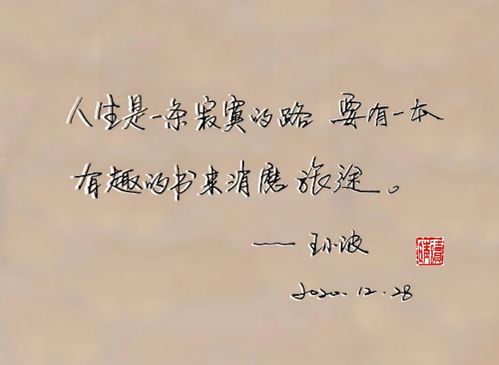 人生是一条寂寞的路 要有一本
有趣的书来消磨旅途。
——王小波
2020.12.28